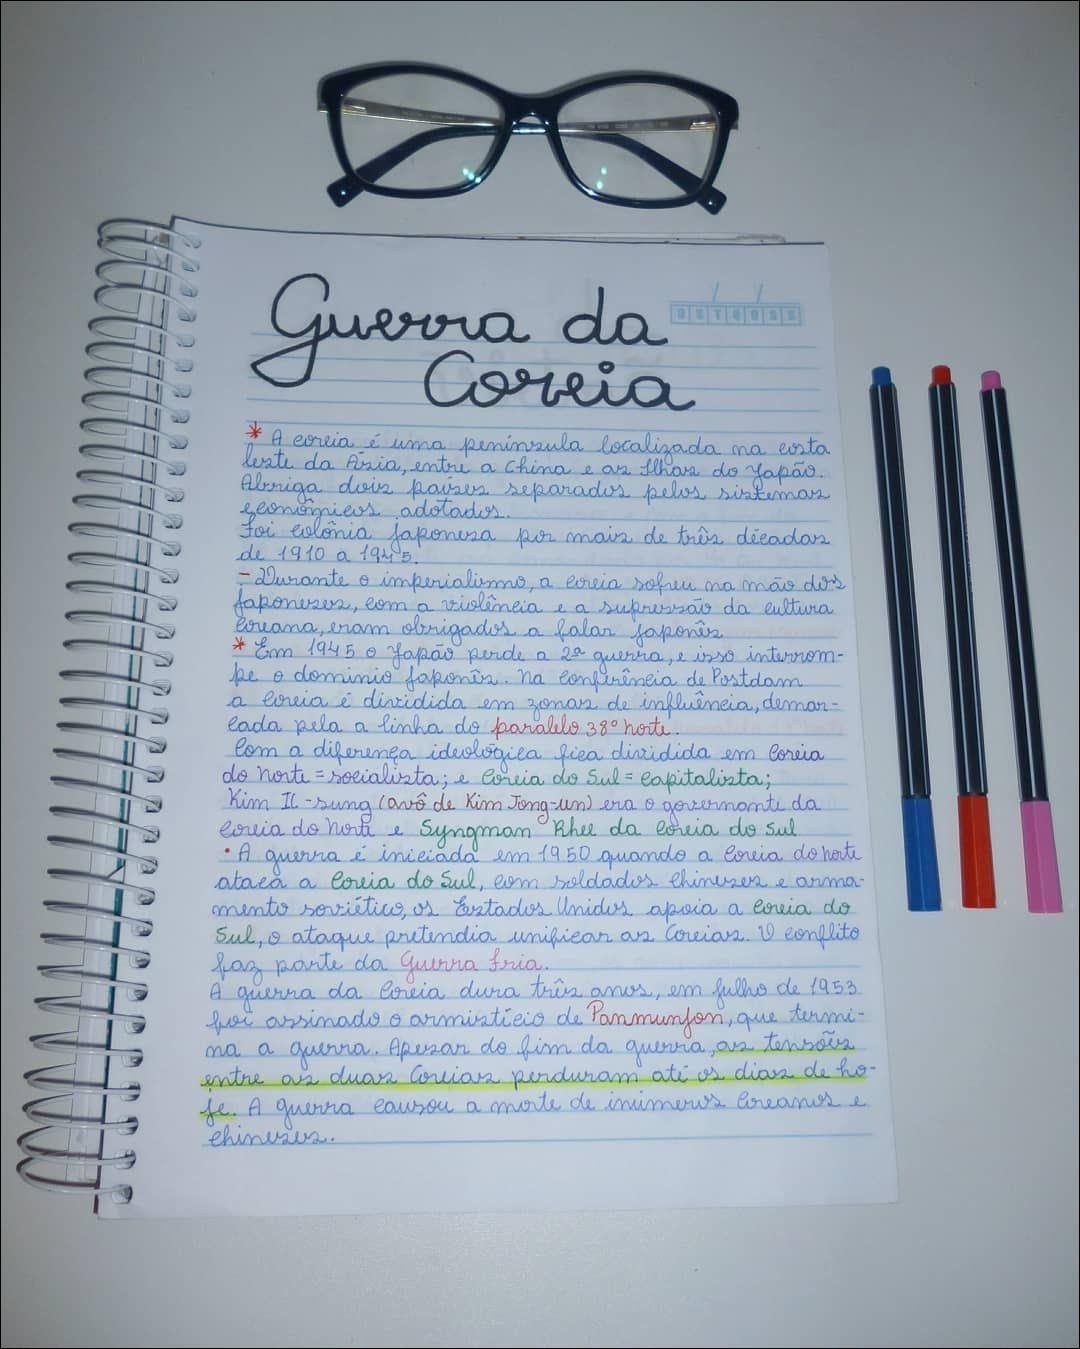 Guerra da
Coreia
* A coreia é uma península localizada na costa
leste da Ásia, entre a China e as Ilhas do Japão.
Abriga dois países separados pelos sistemas
econômicos adotados.
Foi colônia japonesa por mais de três décadas
de 1910 a 1945.
- Durante o imperialismo, a coreia sofreu na mão dos
japoneses, com a violência e a supressão da cultura
coreana, eram obrigados a falar japonês
* Em 1945 o Japão perde a 2ª guerra, e isso interrom-
pe o dominio japonês. Na conferência de Postdam
a Coreia é dividida em zonas de influência, demar-
cada pela a linha do paralelo 38º norte.
Com a diferença ideológica fica dividida em Coreia
do norte = socialista; e Coreia do Sul = capitalista;
Kim Il-sung (avô de Kim Jong-un) era o governante da
Coreia do norte e Syngman Rhee da Coreia do Sul
• A guerra é iniciada em 1950 quando a Coreia do norte
ataca a Coreia do Sul, com soldados chineses e arma-
mento soviético, os Estados Unidos apoia a Coreia do
Sul, o ataque pretendia unificar as Coreias. O conflito
faz parte da Guerra fria.
A guerra da Coreia dura três anos, em julho de 1953
foi assinado o armistício de Panmunjon, que termi-
na a guerra. Apesar do fim da guerra, as tensões
entre as duas Coreias perduram até os dias de ho-
je. A guerra causou a morte de inúmeros Coreanos e
chineses.